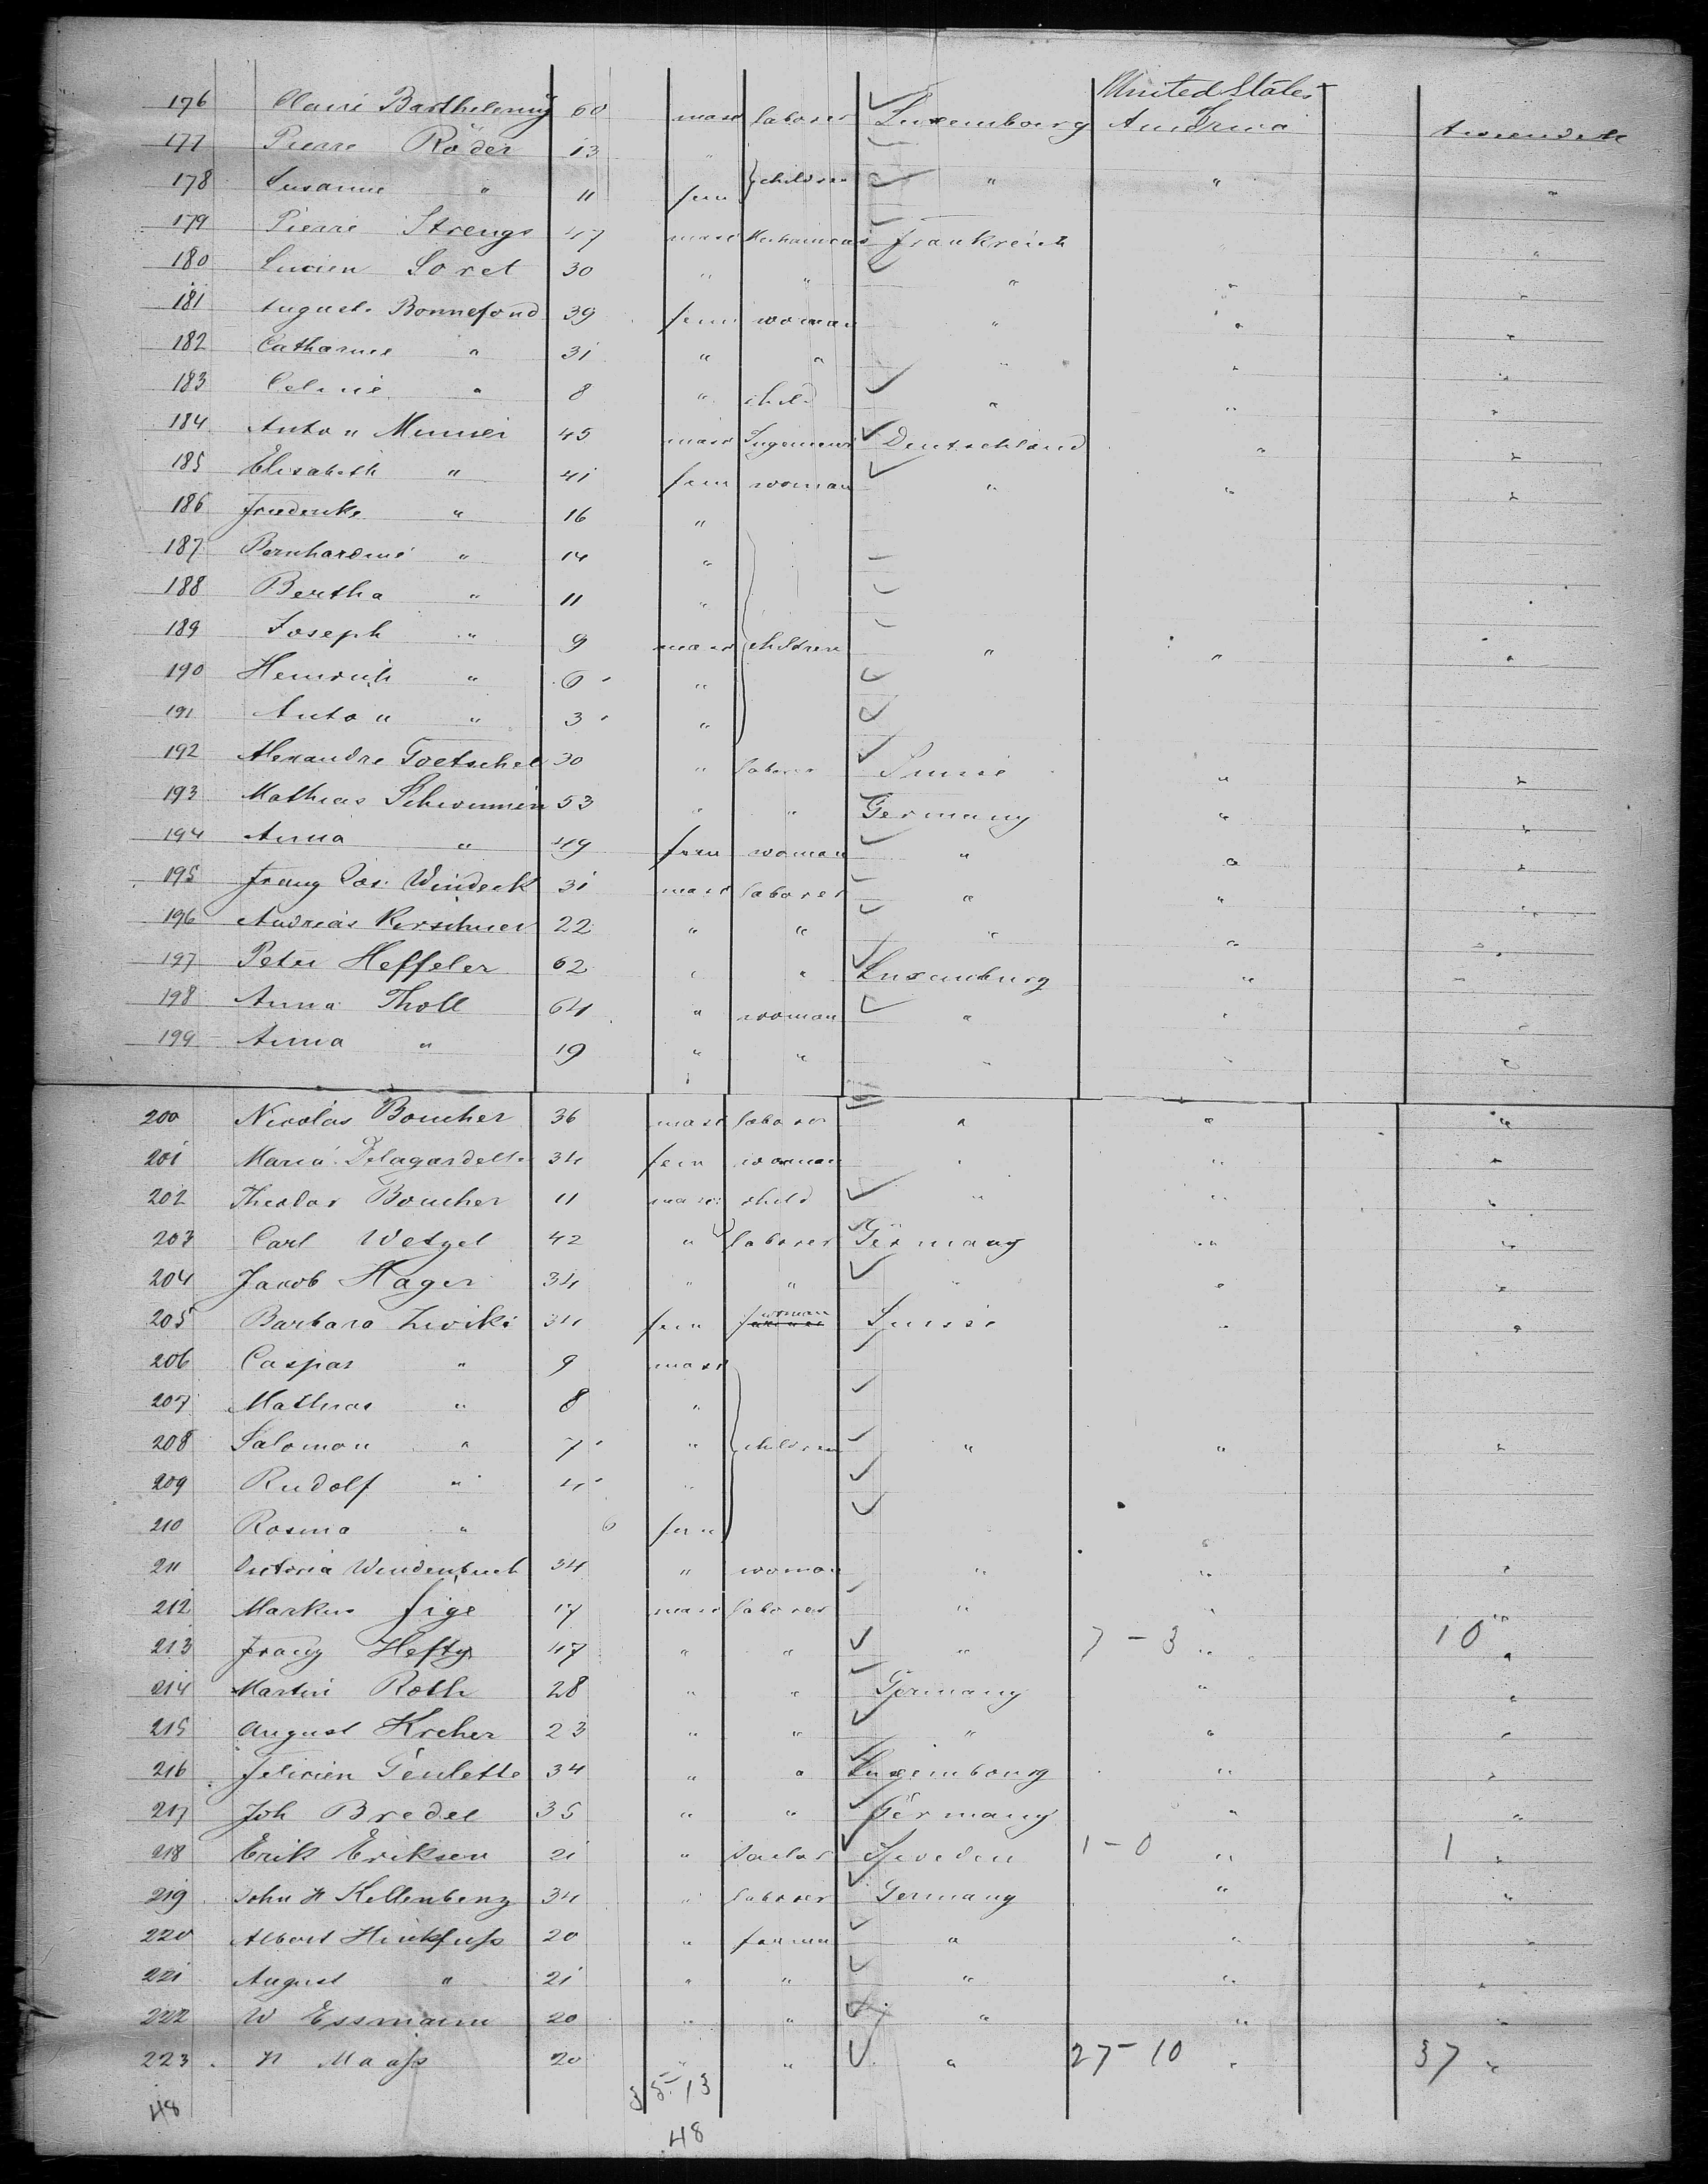 United States
176 Claire Barthelemy 60 masc laborer Luxembourg America
177 Pierre Röder 13 "
178 Susanne " 11 fem children " " "
179 Pierre Strengs 47 masc Mechanicus Frankreich "
180 Lucien Soret 30 " " " " "
181 August. Bonnefond 39 fem woman " " "
182 Catharine " 31 " " " " "
183 Celinie " 8 " child " " "
184 Anton Munier 45 masc Ingenieur Deutschland " "
185 Elisabeth " 41 fem woman " " "
186 Friederike " 16 "
187 Bernhardine " 14 "
188 Bertha " 11 "
189 Joseph " 9 masc children " " "
190 Heinrich " 6 "
191 Anton " 3 "
192 Alexandre Goetschel 30 " laborer Suisse " "
193 Mathias Schwimmer 53 " " Germany " "
194 Anna " 49 fem woman " " "
195 Franz Jos. Windeck 31 masc laborer " " "
196 Andreas Kerschner 22 " " " " "
197 Peter Heffeler 62 " " Luxemburg " "
198 Anna Tholl 64 " woman " " "
199 Anna " 19 " " " " "
200 Nicolas Boucher 36 masc laborer " " "
201 Maria Delagardelle 34 fem woman " " "
202 Theodor Boucher 11 masc child " " "
203 Carl Wetzel 42 " laborer Germany " "
204 Jacob Hager 34 " " " " "
205 Barbara Zwiki 34 fem woman Suisse " "
206 Caspar " 9 masc
207 Mathias " 8 "
208 Salomon " 7 " children " " "
209 Rudolf " 4 "
210 Rosina " 6 fem
211 Victoria Windenbuch 34 " woman " " "
212 Markus Fige 17 masc laborer " " "
213 Franz Hefty 47 " " " 7 - 3 " 10 "
214 Martin Roth 28 " " Germany " "
215 August Kreher 23 " " " " "
216 Felicien Geulette 34 " " Luxembourg " "
217 Joh Bredel 35 " " Germany " "
218 Erik Eriksen 21 " Sailor Sweden 1 - 0 " 1 "
219 John H Kellenbenz 34 " laborer Germany " "
220 Albert Hinkfuss 20 " farmer " " "
221 August " 21 " " " " "
222 W Essmann 20 " " " " "
223 H Maass 20 " " " 27 - 10 " 37 "
35-13
48 48